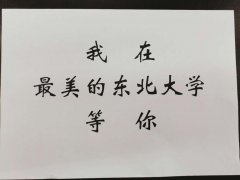 我在
最美的东北大学
等你